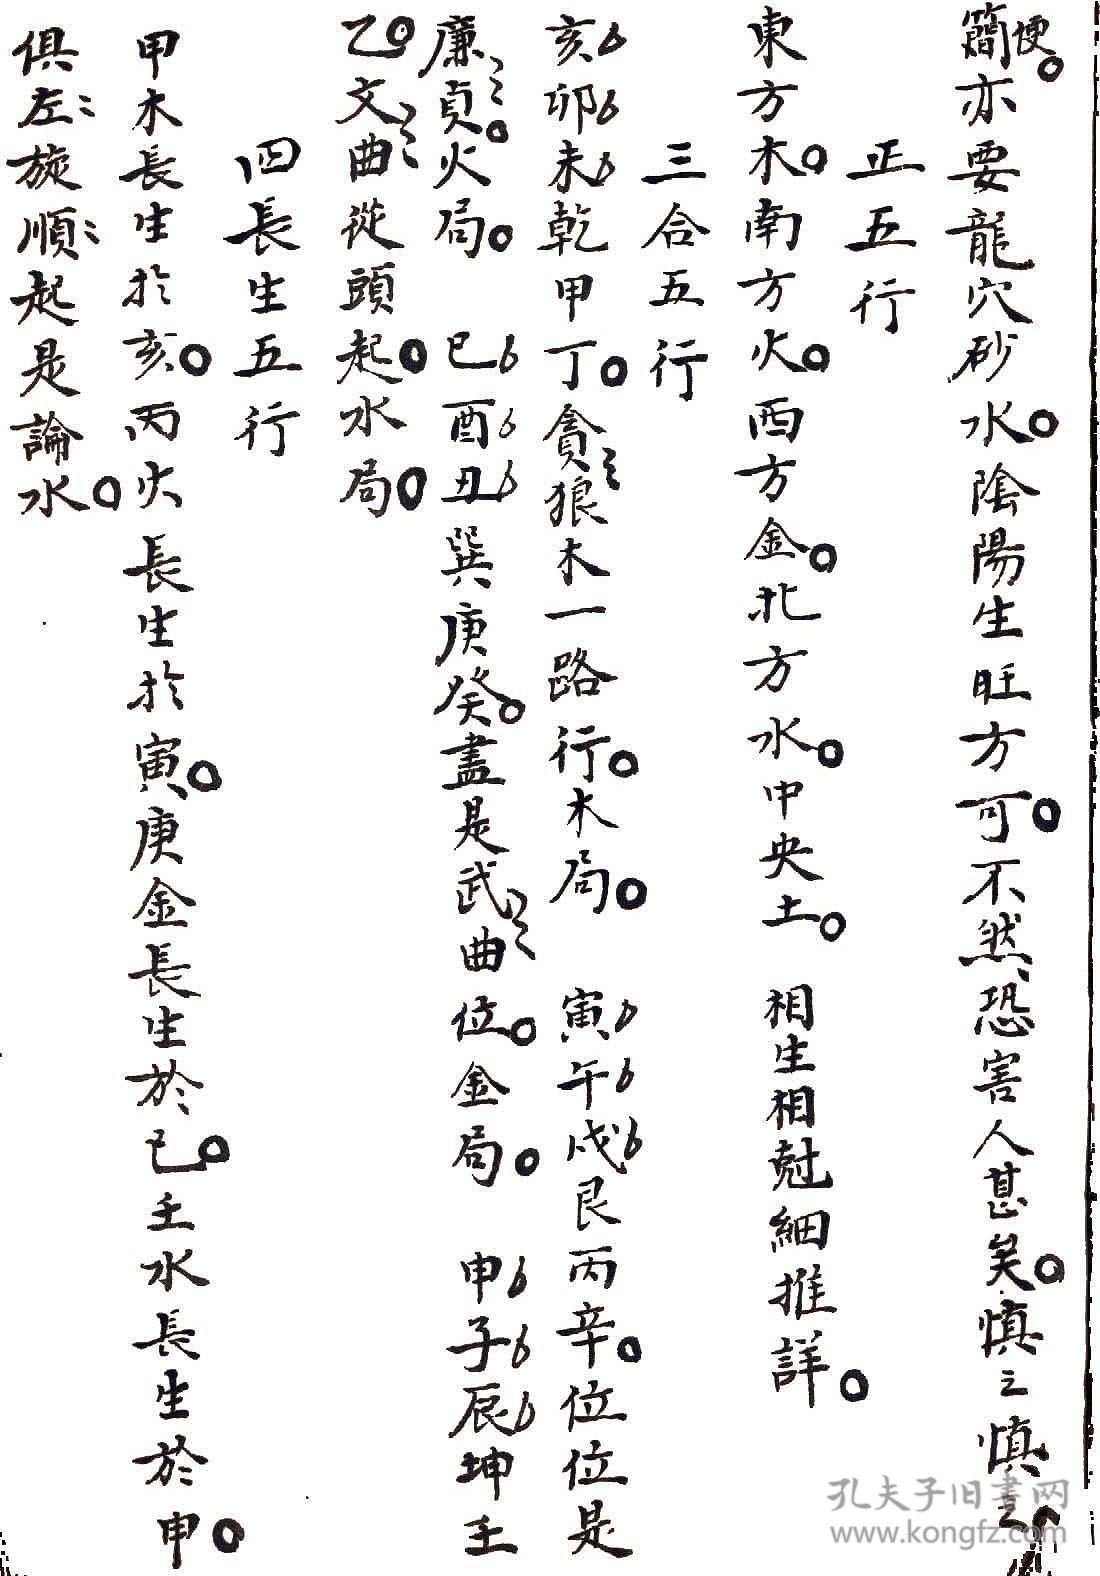 簡便亦要龍穴砂水陰陽生旺方可不然恐害人甚矣慎之慎之
正五行
東方木南方火西方金北方水中央土 相生相尅細推詳
三合五行
亥卯未乾甲丁貪狼木一路行木局 寅午戌艮丙辛位位是
廉貞火局 巳酉丑巽庚癸盡是武曲位金局 申子辰坤壬
乙文曲從頭起水局
四長生五行
甲木長生於亥丙火長生於寅庚金長生於巳壬水長生於申
俱左旋順起是論水
孔夫子旧書网
www.kongfz.com